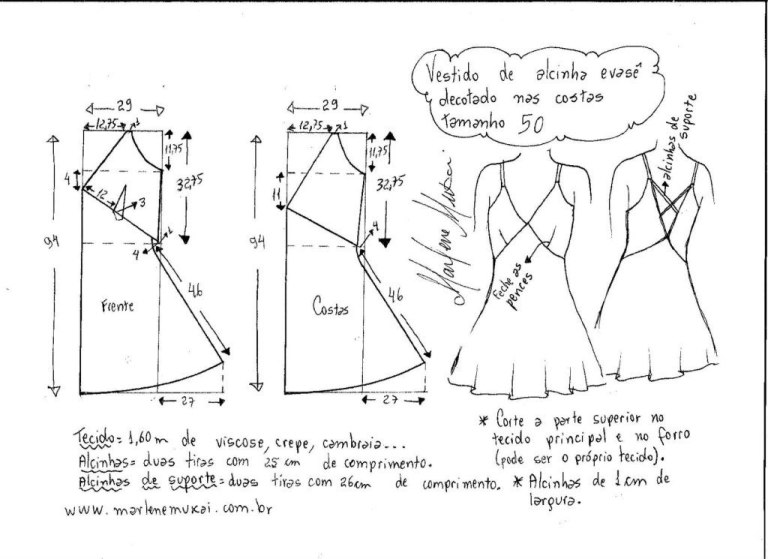 Vestido de alcinha evasê
decotado nas costas
tamanho 50
29
12,75
1
11,75
4
12
3
32,75
94
4
1
46
Frente
27
29
12,75
1
11,75
11
32,75
94
4
46
Costas
27
Marlene Mukai
feche as
pences
alcinhas de
suporte
Tecido= 1,60 m de viscose, crepe, cambraia...
Alcinhas= duas tiras com 25 cm de comprimento.
Alcinhas de suporte= duas tiras com 26cm de comprimento.
www.marlenemukai.com.br
* Corte a parte superior no
tecido principal e no forro
(pode ser o próprio tecido).
* Alcinhas de 1 cm de
largura.